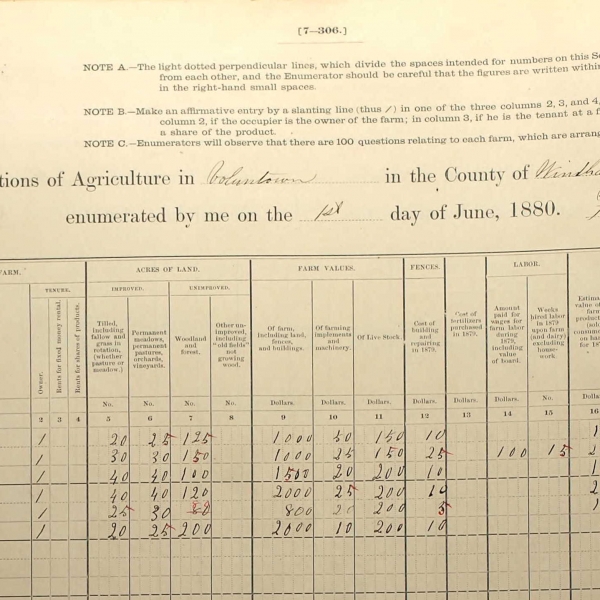 [7—306.]
NOTE A.—The light dotted perpendicular lines, which divide the spaces intended for numbers on this Sc
from each other, and the Enumerator should be careful that the figures are written within
in the right-hand small spaces.
NOTE B.—Make an affirmative entry by a slanting line (thus /) in one of the three columns 2, 3, and 4,
column 2, if the occupier is the owner of the farm; in column 3, if he is the tenant at a f
a share of the product.
NOTE C.—Enumerators will observe that there are 100 questions relating to each farm, which are arrang
tions of Agriculture in Voluntown in the County of Windha
enumerated by me on the 1st day of June, 1880.
FARM. ACRES OF LAND. FARM VALUES. FENCES. LABOR.
TENURE. IMPROVED. UNIMPROVED.
Owner.
Rents for fixed money rental.
Rents for shares of products.
Tilled,
including
fallow and
grass in
rotation,
(whether
pasture or
meadow.)
Permanent
meadows,
permanent
pastures,
orchards,
vineyards.
Woodland
and
forest.
Other un-
improved,
including
"old fields"
not
growing
wood.
Of farm,
including land,
fences,
and buildings.
Of farming
implements
and
machinery.
Of Live Stock.
Cost of
building
and
repairing
in 1879.
Cost of
fertilizers
purchased
in 1879.
Amount
paid for
wages for
farm labor
during
1879,
including
value
of board.
Weeks
hired labor
in 1879
upon farm
(and dairy)
excluding
house-
work.
Estima
value of
farm
product
(sol
consum
on ha
for 187
No. No. No. No. Dollars. Dollars. Dollars. Dollars. Dollars. Dollars. No. Dollars.
2 3 4 5 6 7 8 9 10 11 12 13 14 15 16
/ 20 25 125 1000 50 150 10 1
/ 30 30 150 1000 25 150 25 100 15 2
/ 40 40 100 1500 20 200 10 1
/ 40 40 120 2000 25 200 10 2
/ 25 30 800 20 200 5 1
/ 20 25 200 2000 10 200 10